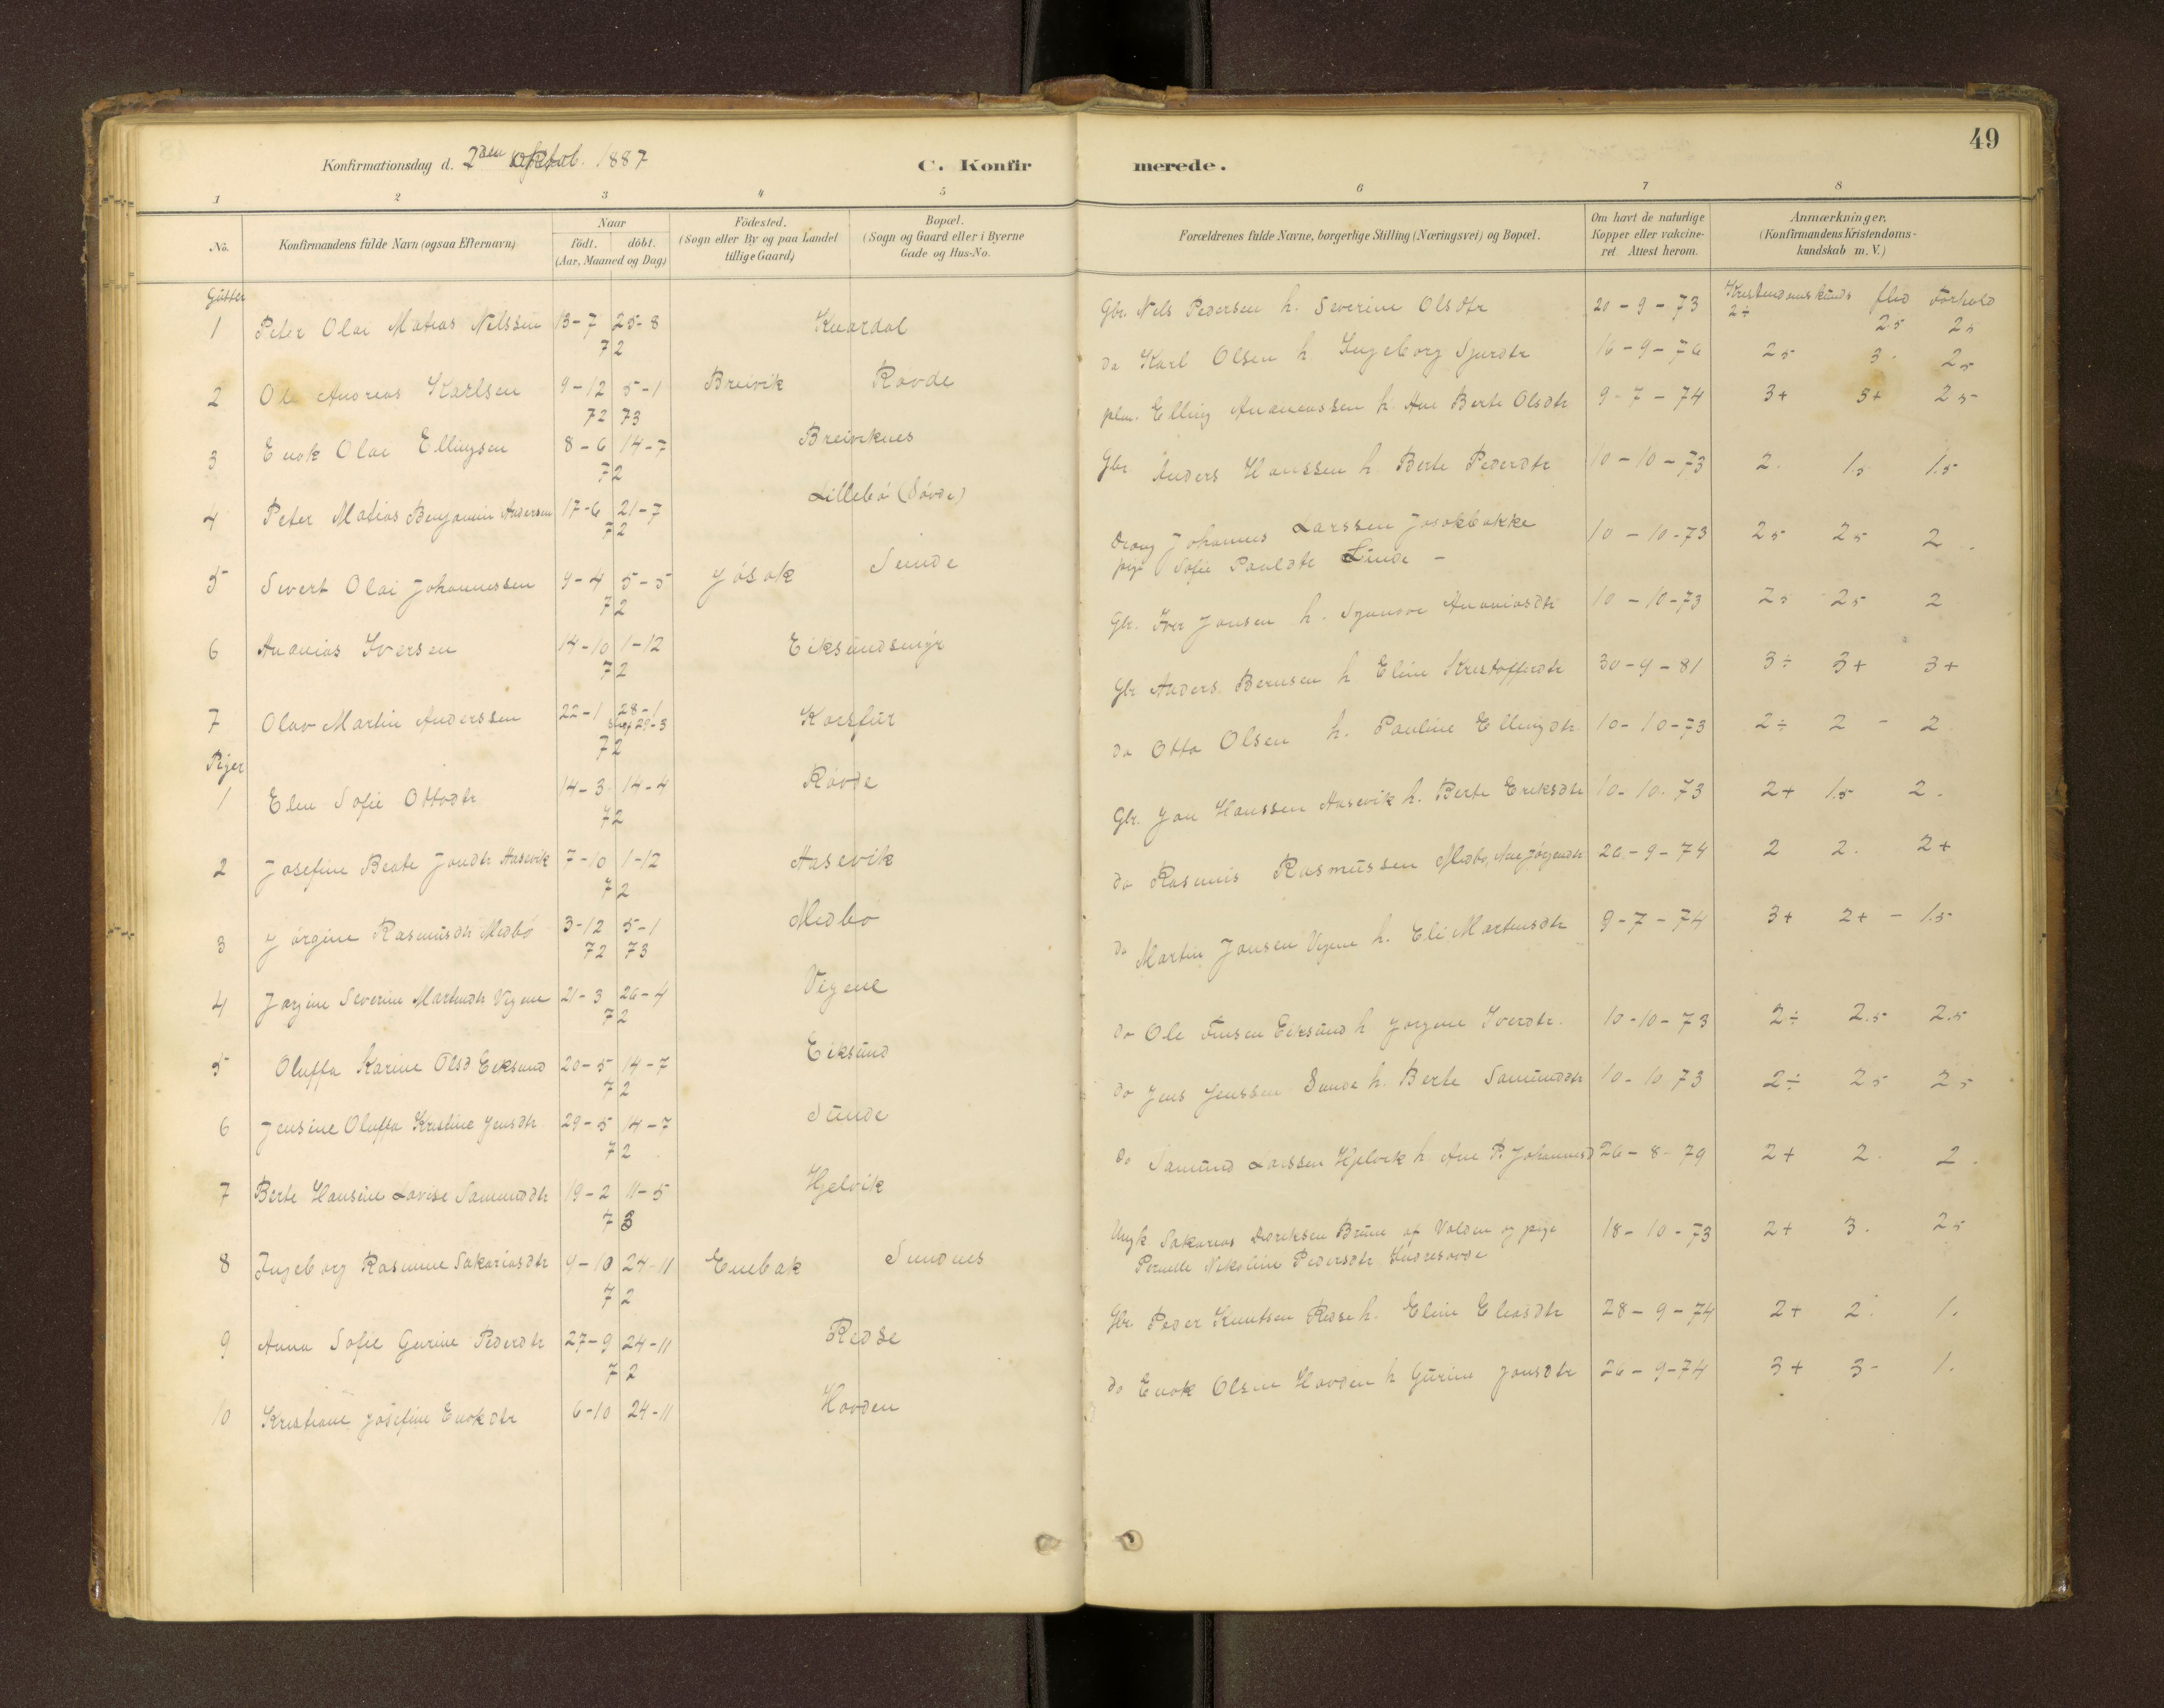 49
Konfirmationsdag d. 2den Oktob. 1887
C. Konfirmerede.
1 2 3 4 5 6 7 8
No.
Konfirmandens fulde Navn (ogsaa Efternavn)
Naar
födt. döbt.
(Aar, Maaned og Dag)
Födested.
(Sogn eller By og paa Landet
tillige Gaard)
Bopæl.
(Sogn og Gaard eller i Byerne
Gade og Hus-No.
Forældrenes fulde Navne, borgerlige Stilling (Næringsvei) og Bopæl.
Om havt de naturlige
Kopper eller vakcine-
ret Attest herom.
Anmærkninger.
(Konfirmandens Kristendoms-
kundskab m. V.)
Gutter
Kristendomskunds flid Forhold
1 Peter Olai Matias Nilssen 13-7 25-8 72 Knardal Gbr. Nils Pedersen h. Severine Olsdtr 20-9-73 2÷ 2.5 2.5
2 Ole Andreas Karlsen 9-12 72 5-1 73 Breivik Rovde do Karl Olsen h Ingeborg Sjurdtr 16-9-76 25 3. 25
3 Enok Olai Ellingsen 8-6 14-7 72 Breiviknes plm. Elling h. Ane Berte Olsdtr 9-7-74 3+ 3+ 25
4 Peter Matias Benjamin Andersen 17-6 21-7 72 Lillebö (Sövde) Gbr. Anders Hanssen h. Berte Pederdtr 10-10-73 2. 1.5 1.5
5 Sivert Olai Johannessen 9-4 5-5 72 Jösok Sunde Dreng Johannes Larssen Jösokbakke
pige Sofie Pauldtr Sunde - 10-10-73 25 25 2.
6 Ananias Iversen 14-10 1-12 72 Eiksundsmyr Gbr. Iver Jonsen h. Synnove Ananiasdtr 10-10-73 25 25 2
7 Olav Martin Anderssen 22-1 28-1 72 Korsfur Gbr Anders Bernsen h Eline Kristofferdtr 30-9-81 3÷ 3+ 3+
Piger
1 Elen Sofie Ottodtr 14-3 14-4 72 Rövde do Otto Olsen h. Pauline Ellingdtr 10-10-73 2÷ 2 - 2
2 Josefine Beate Jondtr Hasevik 7-10 1-12 72 Hasevik Gbr. Jon Hanssen Hasevik h. Berte Eriksdtr 10-10-73 2+ 1.5 2.
3 Jörgine Rasmusdtr Medbö 3-12 72 5-1 73 Medbö do Rasmus Rasmussen Medbö, Ane Jörgendtr 26-9-74 2 2. 2+
4 Jörgine Severine Martindtr Vigene 21-3 26-4 72 Vigene do Martin Jonsen Vigene h. Eli Martinsdtr 9-7-74 3+ 2+ - 1.5
5 Oluffa Karine Olsd Eiksund 20-5 14-7 72 Eiksund do Ole Eiksund h Jorgine Iverdtr. 10-10-73 2÷ 2.5 2.5
6 Jensine Oluffa Kristine Jensdtr 29-5 14-7 72 Sunde do Jens Jenssen Sunde h. Berte Samunddtr 10-10 73 2÷ 25 25
7 Berte Hansine Lovise Samunddtr 19-2 11-5 73 Hjelvik do Samund Larssen Hjelvik h Ane P. Johannesd 26-8-79 2+ 2. 2.
8 Ingeborg Rasmine Sakariasdtr 9-10 24-11 72 Enebak Sundnes Ungk Sakarias Brune af Volden og pige
Pernelle Nikoline Pedersdtr 18-10-73 2+ 3. 25
9 Anna Sofie Gurine Pederdtr 27-9 24-11 72 Redse Gbr. Peder Knutsen Redse h. Eline Eliasdtr 28-9-74 2+ 2. 1.
10 Kristiane Josefine Enokdtr 6-10 24-11 Hovden do Enok Olsen Hovden h Gurine Jonsdtr 26-9-74 3+ 3- 1.